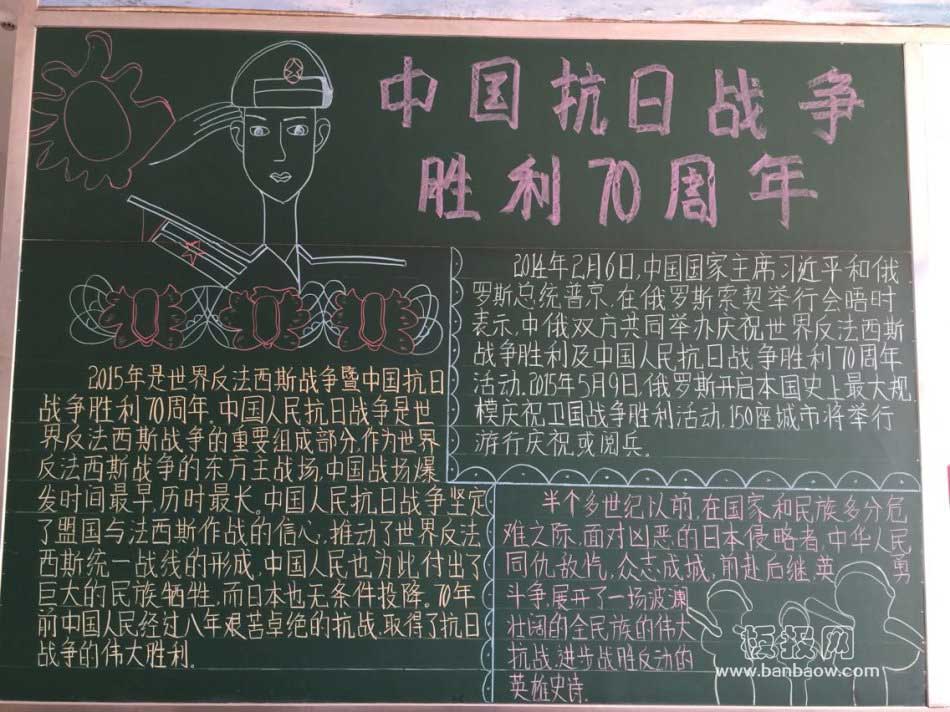 中国抗日战争
胜利70周年
2014年2月6日,中国国家主席习近平和俄
罗斯总统普京,在俄罗斯索契举行会晤时
表示,中俄双方共同举办庆祝世界反法西斯
战争胜利及中国人民抗日战争胜利70周年
活动.2015年5月9日,俄罗斯开启本国史上最大规
模庆祝卫国战争胜利活动,150座城市将举行
游行庆祝或阅兵。
2015年是世界反法西斯战争暨中国抗日
战争胜利70周年。中国人民抗日战争是世
界反法西斯战争的重要组成部分,作为世界
反法西斯战争的东方主战场,中国战场爆
发时间最早,历时最长。中国人民抗日战争坚定
了盟国与法西斯作战的信心,推动了世界反法
西斯统一战线的形成,中国人民也为此付出了
巨大的民族牺牲,而日本也无条件投降。70年
前中国人民经过八年艰苦卓绝的抗战,取得了抗日
战争的伟大胜利.
半个多世纪以前,在国家和民族多分危
难之际,面对凶恶的日本侵略者,中华人民
同仇敌忾,众志成城,前赴后继,英勇
斗争,展开了一场波澜
壮阔的全民族的伟大
抗战,进步战胜反动的
英雄史诗.
板报网
www.banbaow.com